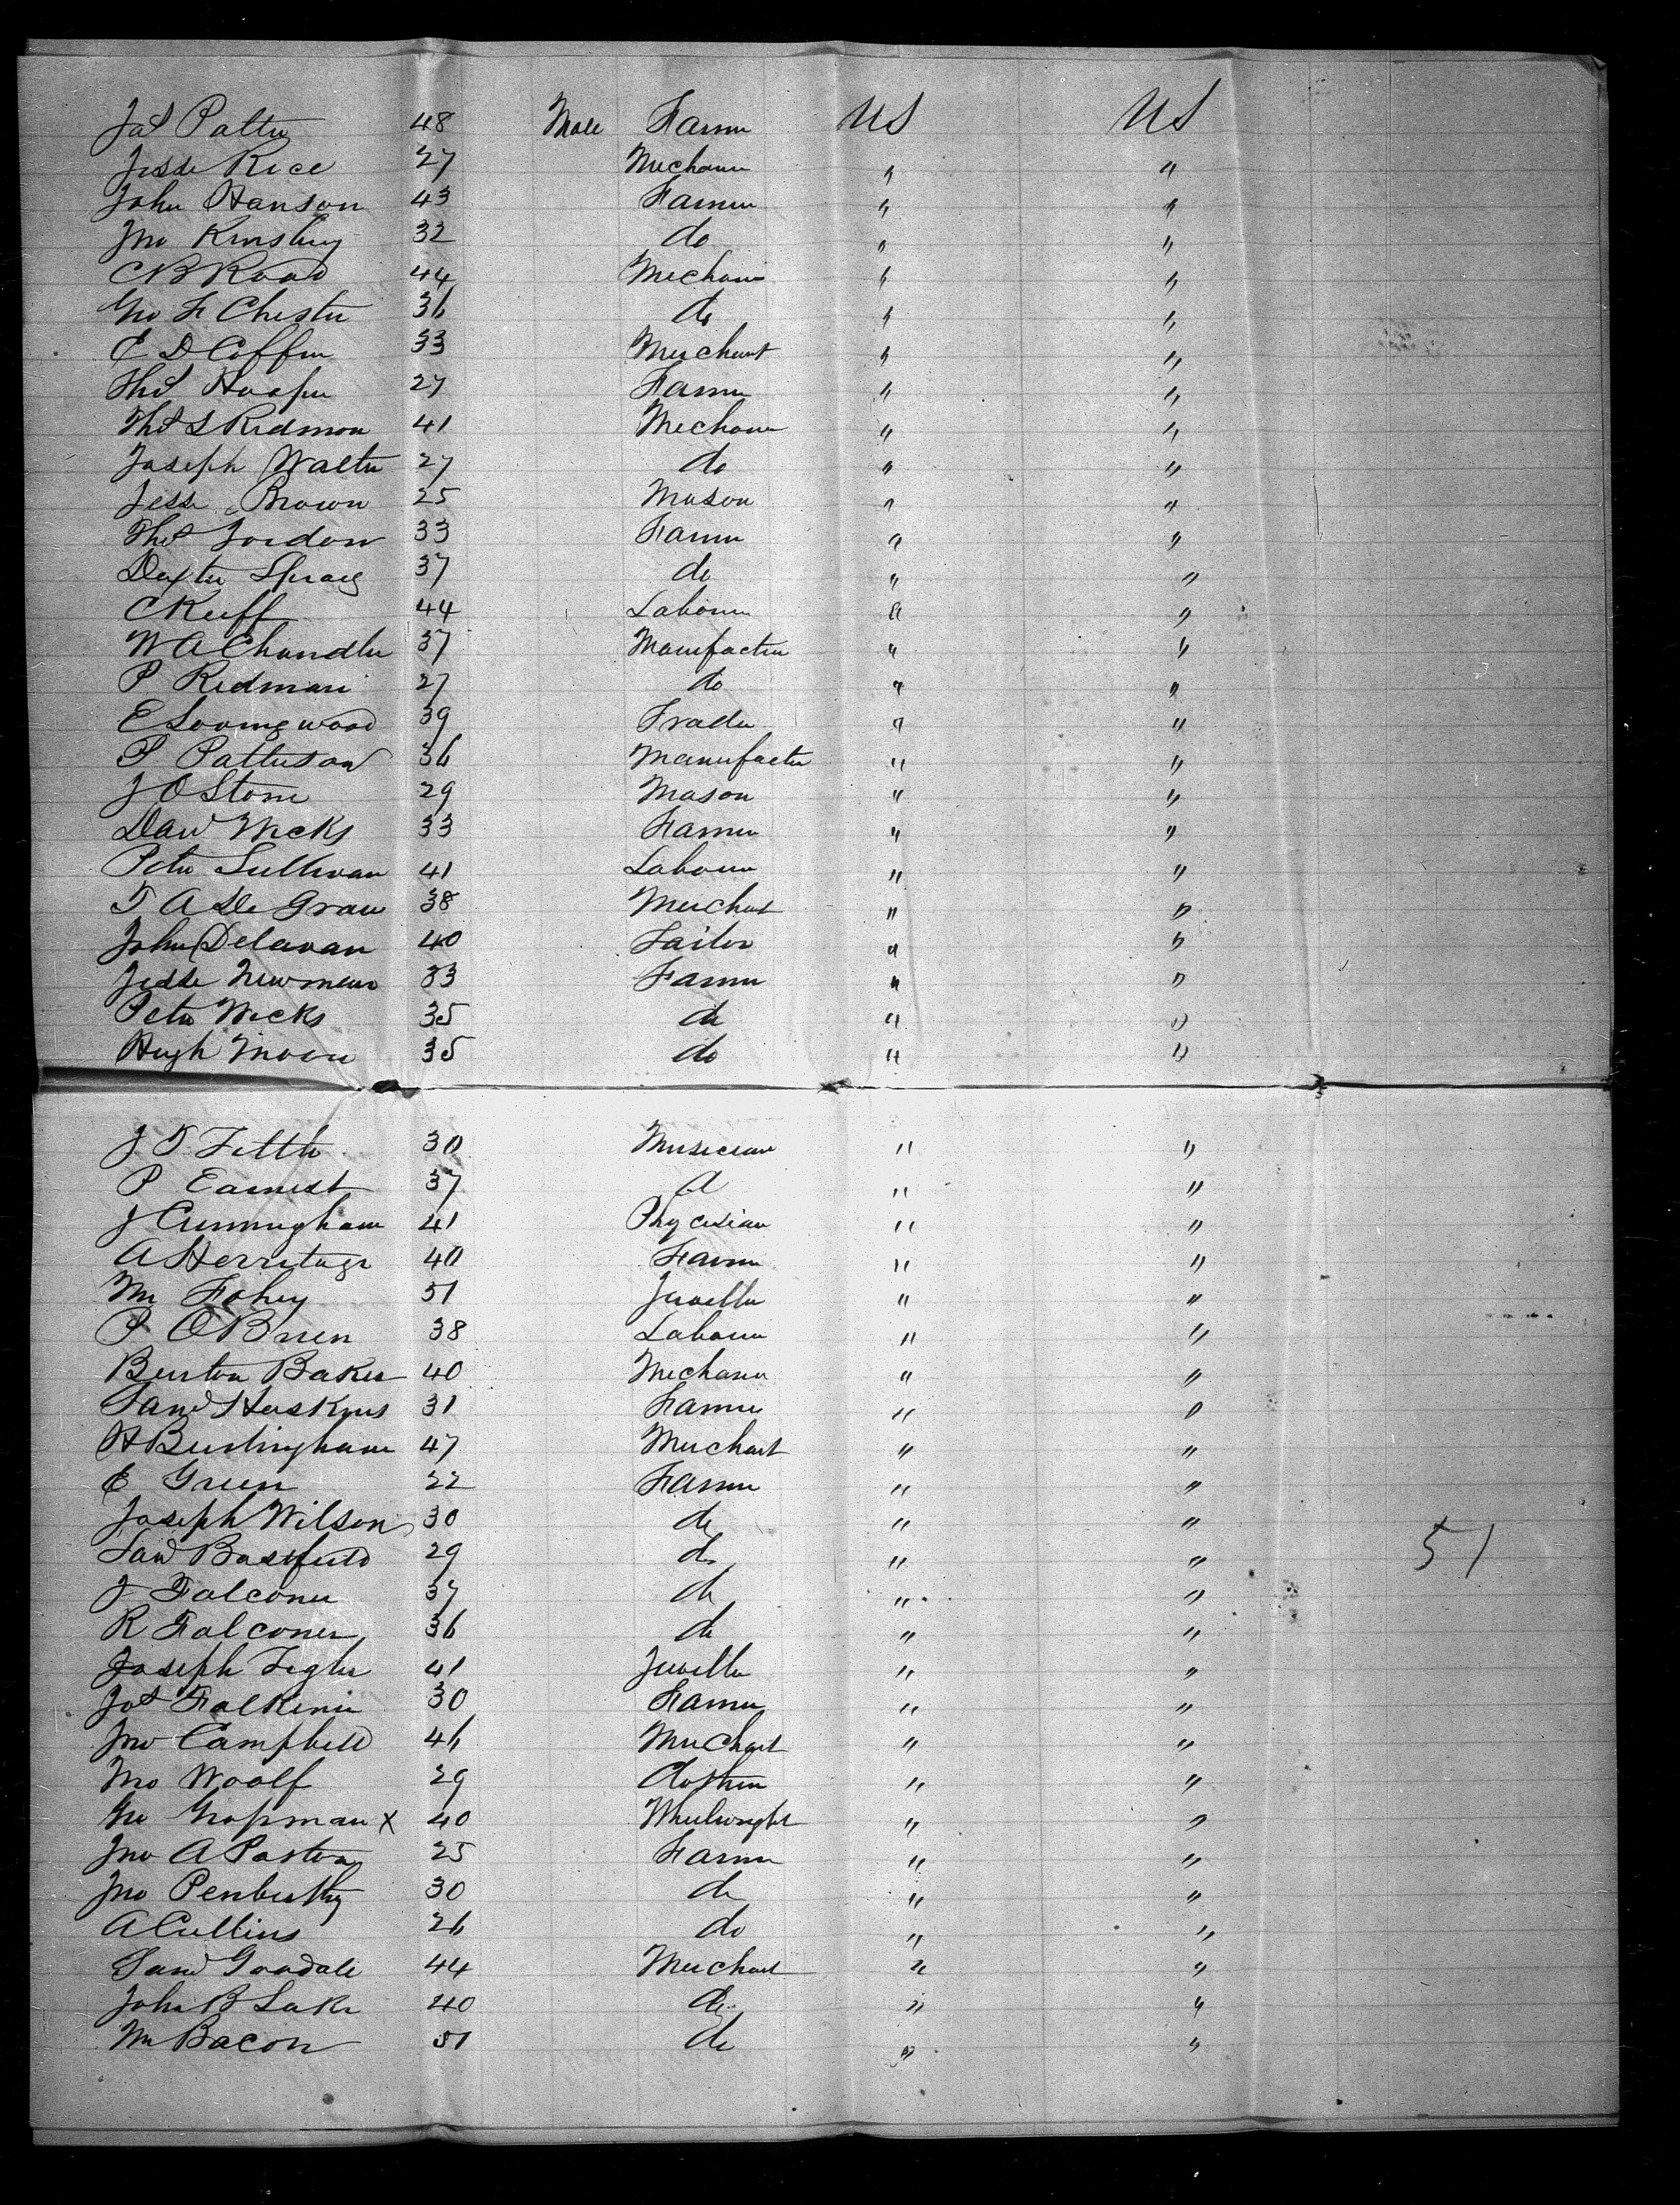 Jas Patten 48 Male Farmer US US
Jesse Rice 27 Mechanic " "
John Hanson 43 Farmer " "
Jno Kinsbury 32 do " "
C B Road 44 Mechanic " "
Geo F Chester 36 do " "
E D Coffin 33 Merchant " "
Thos Hooper 27 Farmer " "
Thos S Redmon 41 Mechanic " "
Joseph Walter 27 do " "
Jesse Brown 25 Mason " "
Thos Jordon 33 Farmer " "
Dexter Sprag 37 do " "
C Keiff 44 Laborer " "
W A Chandler 37 Manufacter " "
P Redman 27 do " "
E Loomgwood 39 Trader " "
P Patterson 36 Manufacter " "
J O Stone 29 Mason " "
Davd Weeks 33 Farmer " "
Peter Sullivan 41 Laborer " "
T A De Graw 38 Merchant " "
John Delavan 40 Tailor " "
Jesse Newman 33 Farmer " "
Peter Weeks 35 do " "
Hugh Moore 35 do " "
J T Tuttle 30 Musician " "
P Earnest 37 " "
J Cunningham 41 Phycisian " "
A Herritage 40 Farmer " "
Wm Fahey 51 Jeweller " "
P O Brien 38 Laborer " "
Burton Baker 40 Mechanic " "
Saml Haskins 31 Farmer " "
H Burlingham 47 Merchant " "
E Green 22 Farmer " "
Joseph Wilson 30 do " "
Saml Bassfield 29 do " "
J Falconer 37 do " "
R Falconer 36 do " "
Joseph Tegler 41 Jeweller " "
Jos Falkiner 30 Farmer " "
Jno Campbell 46 Merchant " "
Mo Woolf 29 Clothier " "
Geo Gropman x 40 Wheelwright " "
Jno A Paston 25 Farmer " "
Jno Penberthy 30 do " "
A Cullins 26 do " "
Saml Goodale 44 Merchant " "
John B Lake 40 do " "
Wm Bacon 51 do " "
51